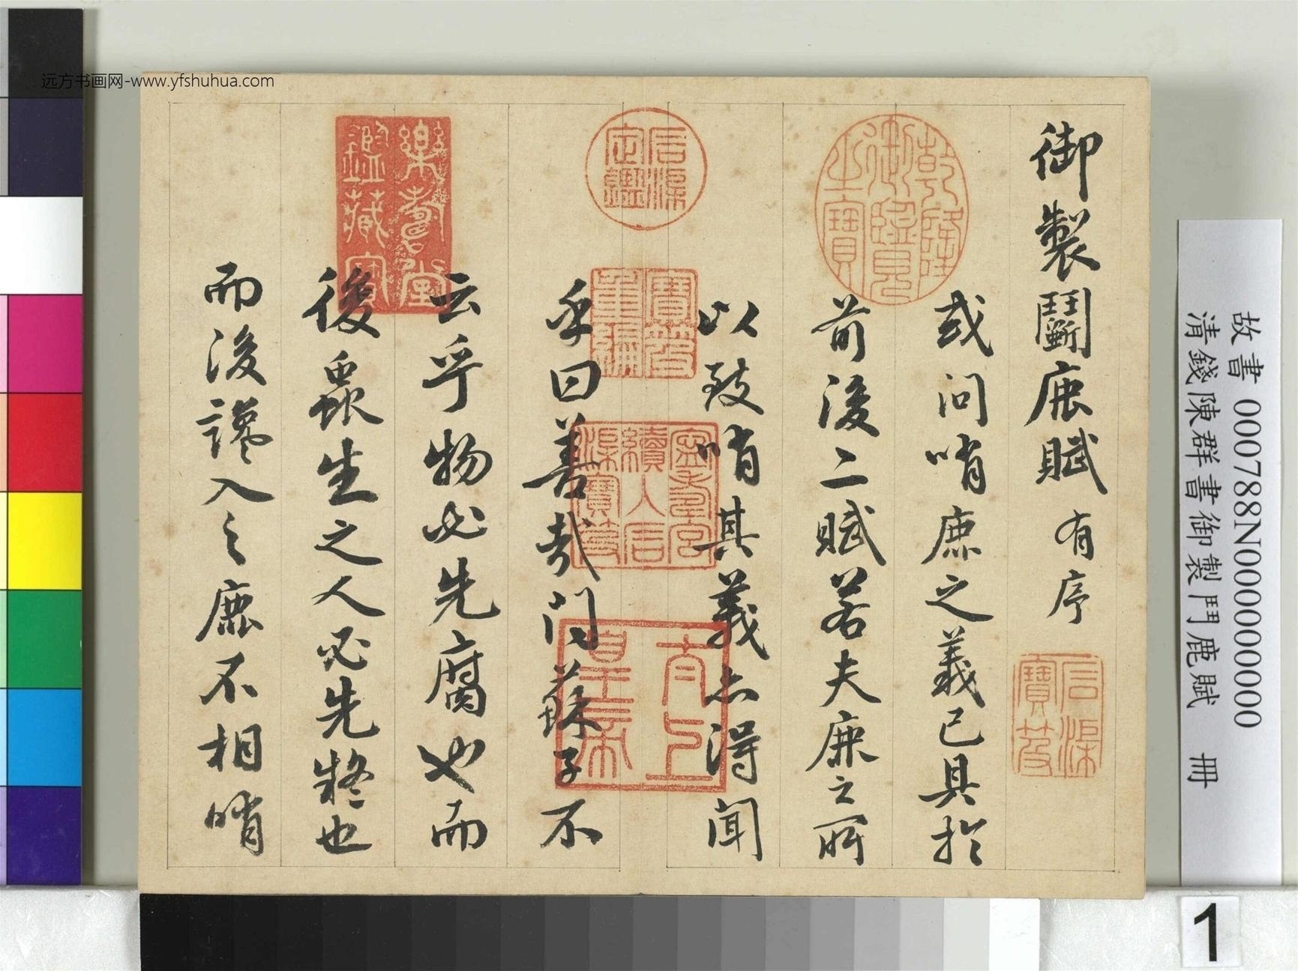 远方书画网-www.yfshuhua.com
御製鬭鹿賦 有序
或問哨鹿之義已具於
前後二賦若夫鹿之所
以致哨其義亦得聞
乎曰善哉問蘇子不
云乎物必先腐也而
後蟲生之人必先疑也
而後讒入之鹿不相哨
乾隆御覽之寶
石渠定鑑
寶笈重編
寧壽宮續入石渠寶笈
太上皇帝
樂壽堂鑑藏寶
石渠寶笈
故書 000788N000000000
清錢陳群書御製鬥鹿賦 冊
1